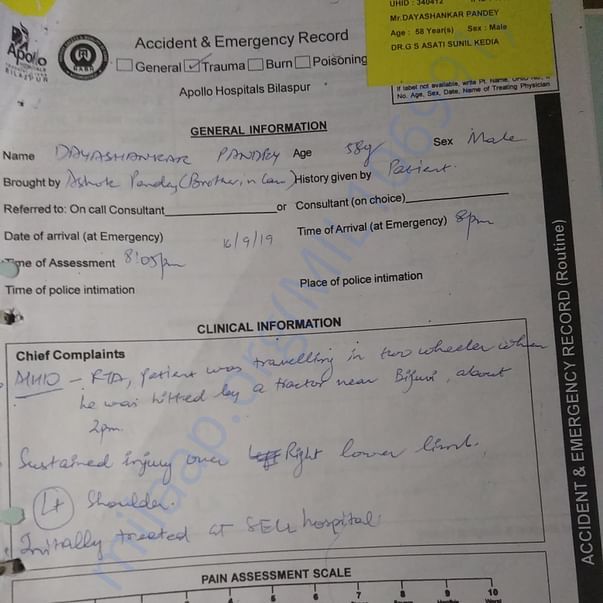 UHID : 340412
Mr.DAYASHANKAR PANDEY
Age : 58 Year(s) Sex : Male
DR.G S ASATI SUNIL KEDIA
If label not available, write Pt. Name,
No. Age, Sex, Date, Name of Treating Physician
Apollo
BILASPUR
Accident & Emergency Record
General Trauma Burn Poisoning
Apollo Hospitals Bilaspur
GENERAL INFORMATION
Name DAYASHANKAR PANDEY Age 58y Sex Male
Brought by Ashok Pandey (Brother in law) History given by Patient.
Referred to: On call Consultant or Consultant (on choice)
Date of arrival (at Emergency) 16/9/19 Time of Arrival (at Emergency) 8pm
Time of Assessment 8:05pm
Time of police intimation Place of police intimation
CLINICAL INFORMATION
Chief Complaints
- RTA, patient was travelling in two wheeler when
he was hitted by a tractor near , about
2pm.
Sustained injury over Right lower limb.
Lt Shoulder.
Initially treated at SECL hospital.
PAIN ASSESSMENT SCALE
1 2 3 4 5 6 7 8 9 10
ACCIDENT & EMERGENCY RECORD (Routine)